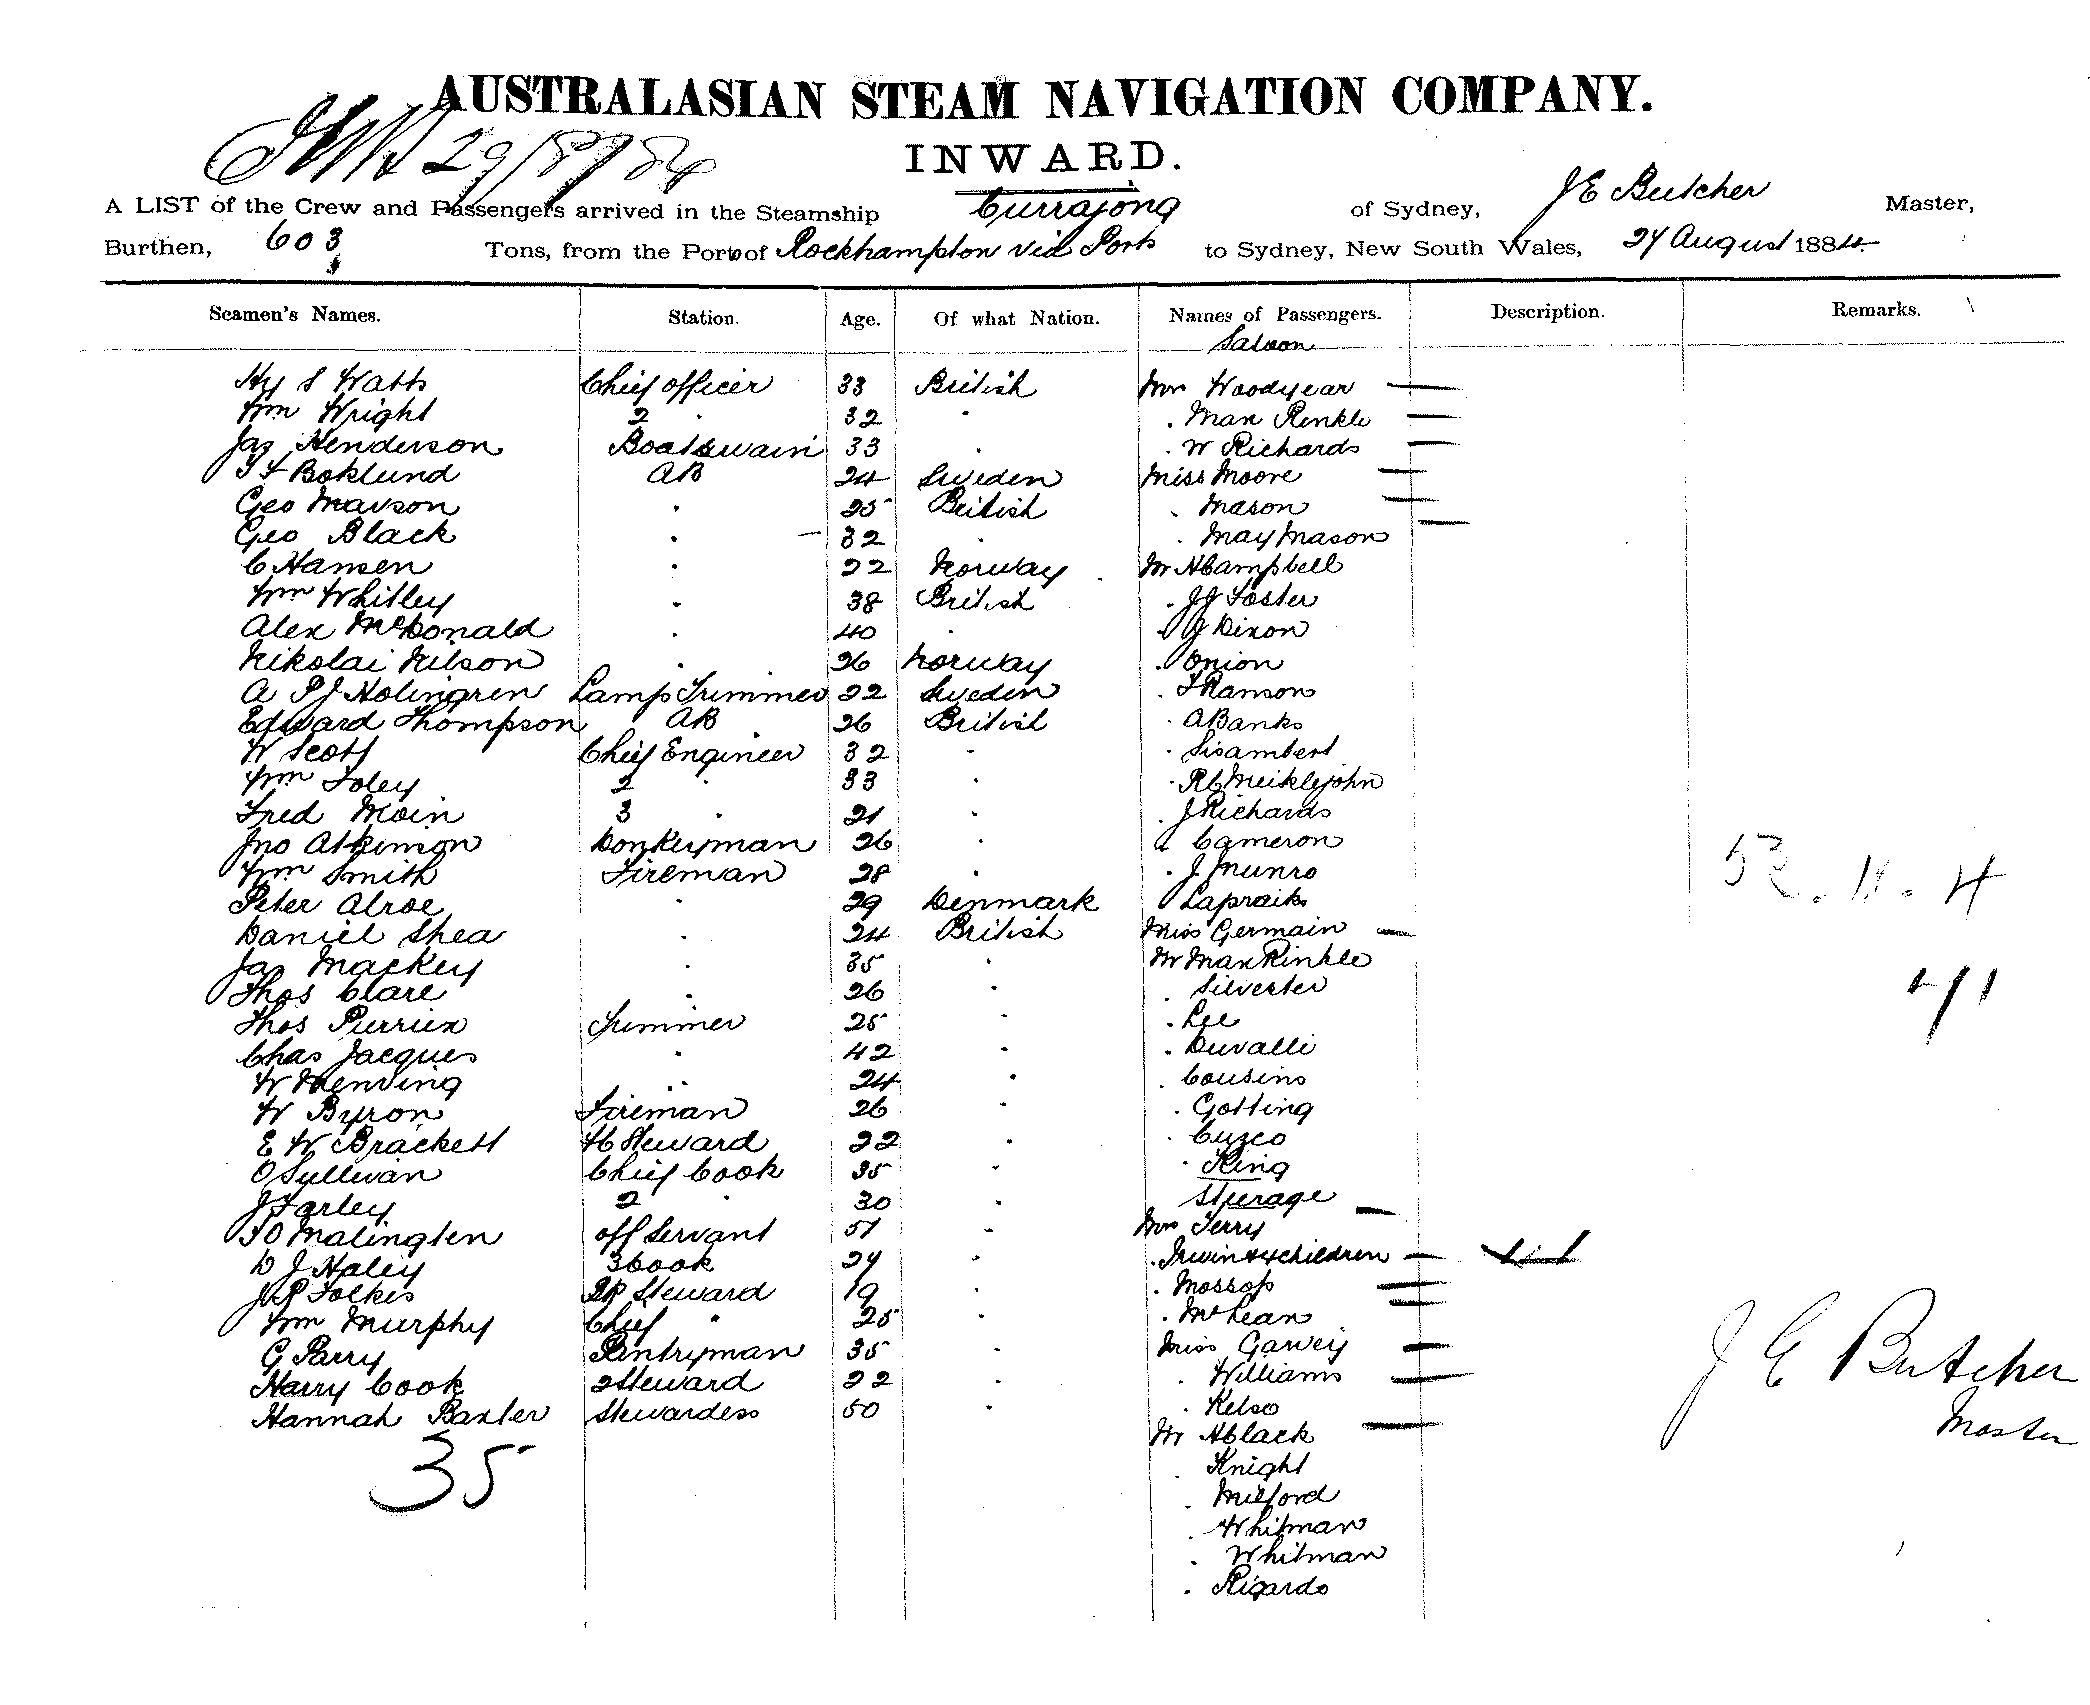 AUSTRALASIAN STEAM NAVIGATION COMPANY.
29/8/84
INWARD.
A LIST of the Crew and Passengers arrived in the Steamship Currajong of Sydney, J E Butcher Master,
Burthen, 603 Tons, from the Port of Rockhampton via Ports to Sydney, New South Wales, 27 August 1884
Seamen's Names. Station. Age. Of what Nation. Names of Passengers. Description. Remarks.
Saloon
Hy S Watts Chief officer 33 British Mrs Woodyear
Wm Wright 2 " 32 " . Max Rinkle
Jas Henderson Boatswain 33 " . W Richards
Boklund AB 24 Sweden Miss Moore
Geo Mawson " 25 British . Mason
Geo Black " 32 " . May Mason
C Hansen " 22 Norway Mr A Campbell
Wm Whitley " 38 British . J J Foster
Alex McDonald " 40 " . J Dixon
Nikolai Nilson " 26 Norway . Onion
A P J Holingren Lamp Trimmer 22 Sweden . F Ranson
Edward Thompson AB 26 British . A Banks
W Scott Chief Engineer 32 " . Lisambert
Wm Foley 2 " 33 " . R C Meiklejohn
Fred Moin 3 " 21 " . J Richards
Jno Atkinson Donkeyman 26 " . Cameron
Wm Smith Fireman 28 " . J Munro
Peter Alroe " 29 Denmark . Lapraik
Daniel Shea " 24 British Miss Germain
Jas Mackey " 35 " Mr Max Rinkle
Thos Clare " 26 " . Silvester
Thos Purrien Trimmer 25 " . Lee
Chas Jacques " 42 " . Duvalli
W " 24 " . Cousins
W Byron Fireman 26 " . Gotting
E W Brackett Steward 22 " . Cuzco
O Sullivan Chief Cook 35 " . King
J Farley 2 " 30 " Steerage
Malington off Servant 51 " Mrs Terry
D J Haley 3 Cook 24 " . Irwin & 4 children
J R Folkes Steward 19 " . Mossop
Wm Murphy Chief " 25 " . McLean
G Parry Pantryman 35 " Miss Garvey
Harry Cook 2 Steward 22 " . Williams
Hannah Baxter Stewardess 50 " . Kelso
35
Mr A Clack
. Knight
. Milford
. Whitman
. Whitman
. Rigardo
52 . 11 . 4
71
J E Butcher
Master